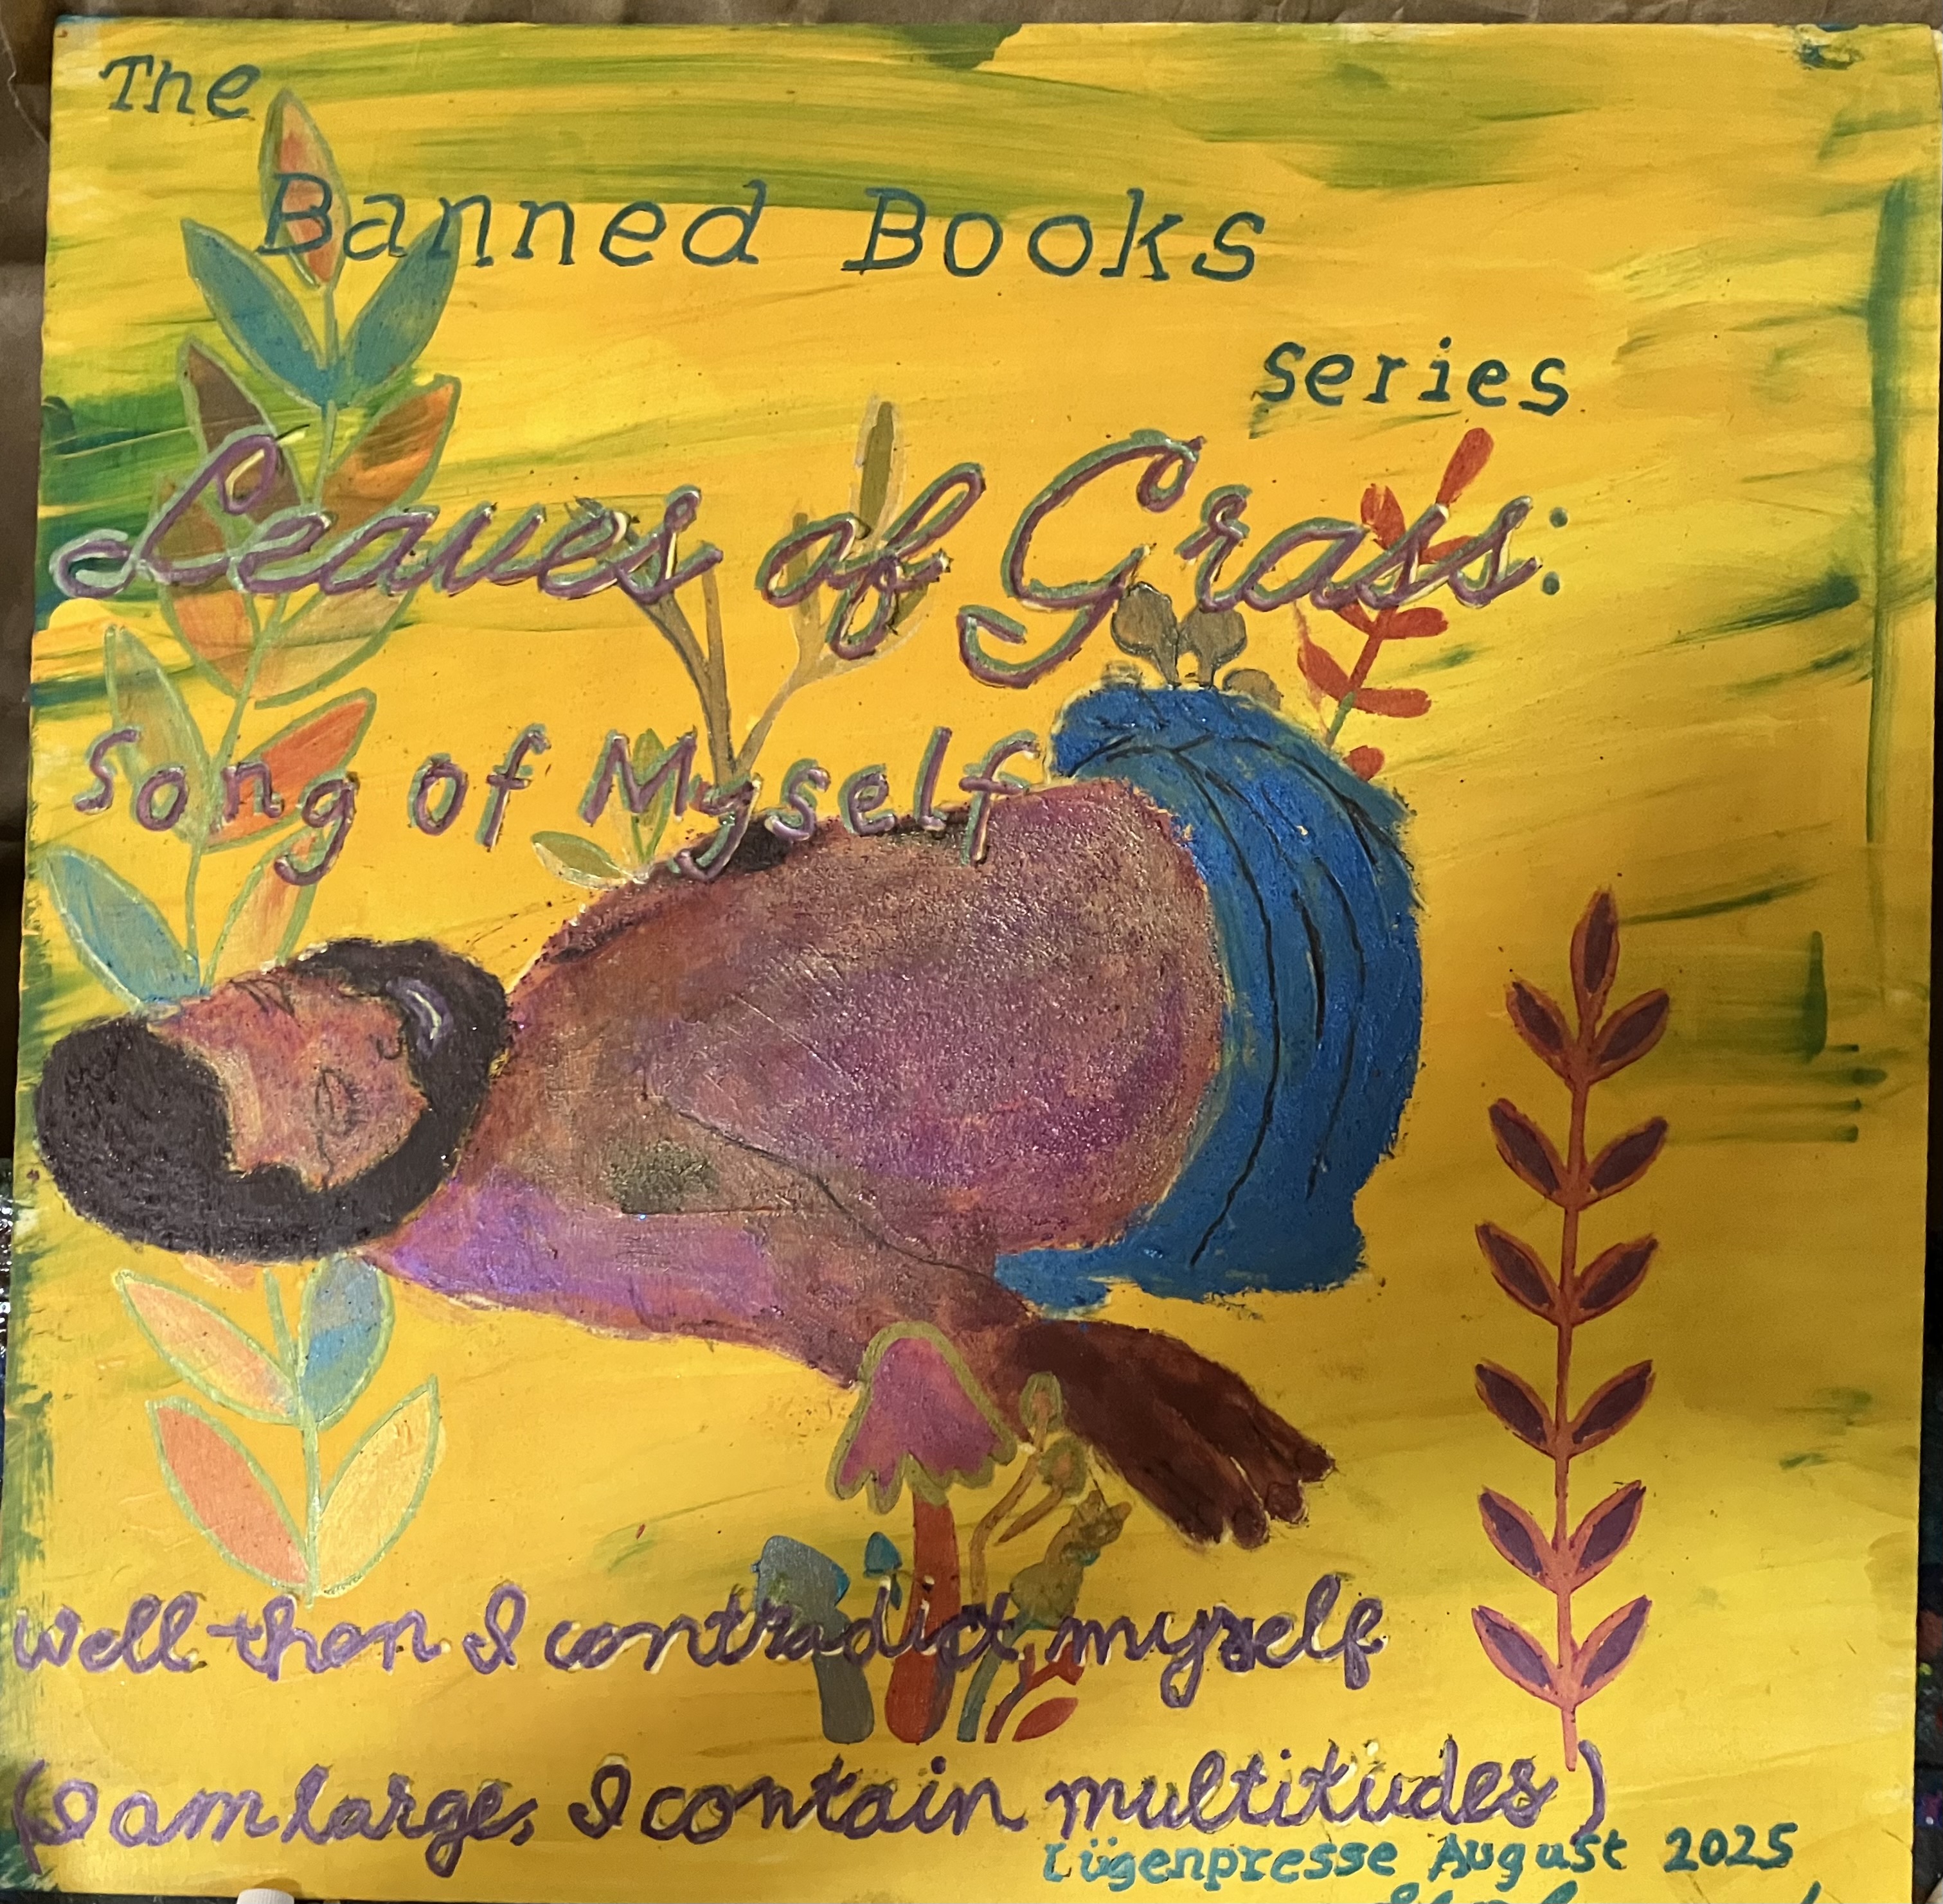 The
Banned Books
series
Leaves of Grass:
Song of Myself
Well then I contradict myself
(I am large, I contain multitudes)
Lügenpresse August 2025